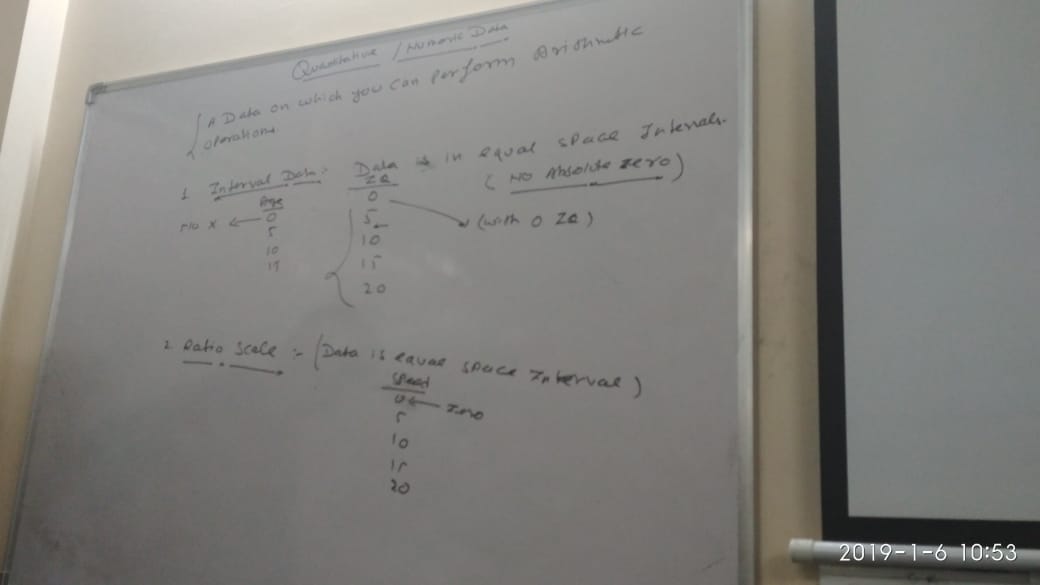 Quantitative / Numeric Data
A Data on which you can perform Arithmetic
operations
1 Interval Data :- Data in equal space Intervals.
(NO Absolute zero)
Age
IQ
0
0
(with 0 IQ)
5
5
10
10
15
15
20
2 Ratio Scale :- (Data is equal space Interval)
Speed
0 Zero
5
10
15
20
2019-1-6 10:53